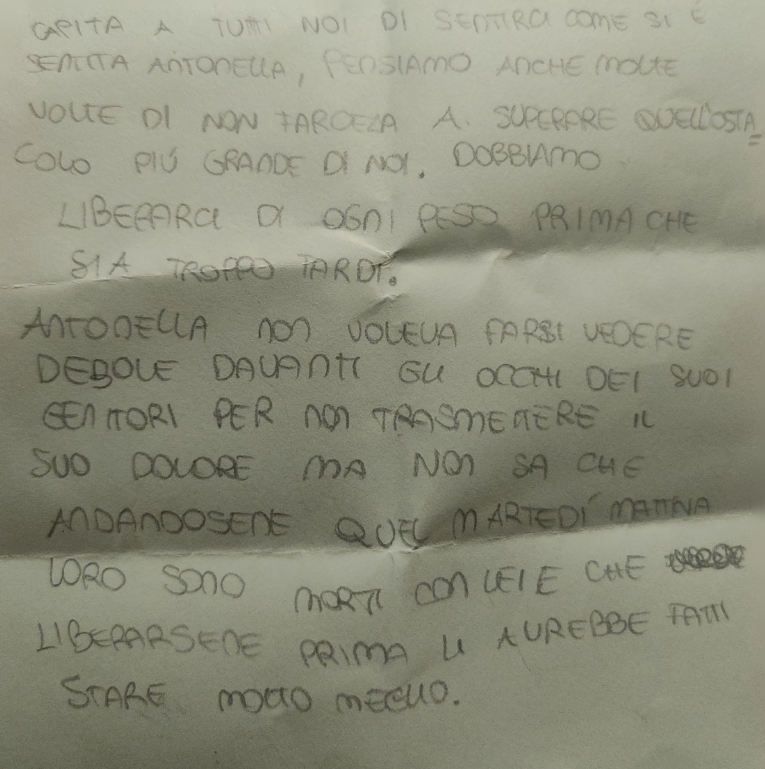 CAPITA A TUTTI NOI DI SENTIRCI COME SI É
SENTITA ANTONELLA, PENSIAMO ANCHE MOLTE
VOLTE DI NON FARCELA A. SUPERARE QUELL'OSTA=
COLO PIÚ GRANDE DI NOI. DOBBIAMO
LIBERARCI DI OGNI PESO PRIMA CHE
SIA TROPPO TARDI.
ANTONELLA NON VOLEVA FARSI VEDERE
DEBOLE DAVANTI GLI OCCHI DEI SUOI
GENITORI PER NON TRASMETTERE IL
SUO DOLORE MA NON SA CHE
ANDANDOSENE QUEL MARTEDÍ MATTINA
LORO SONO MORTI CON LEI E CHE
LIBERARSENE PRIMA LI AVREBBE FATTI
STARE MOLTO MEGLIO.